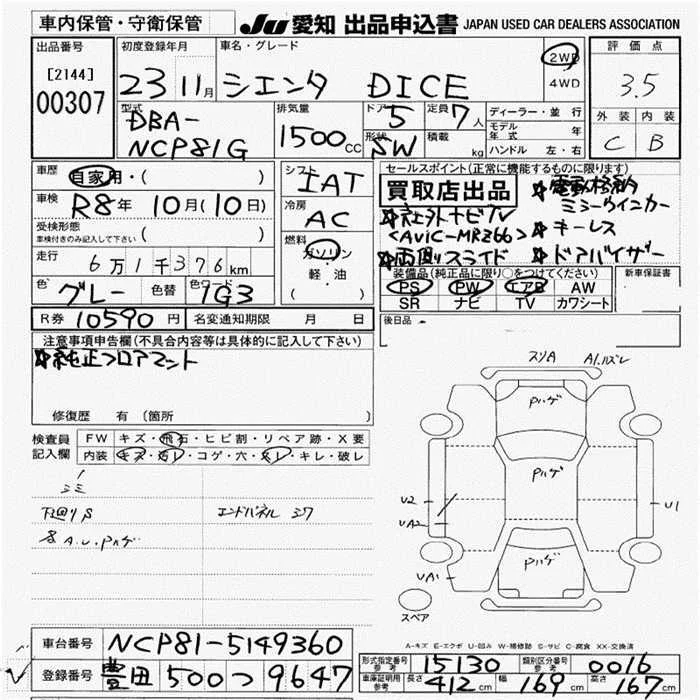 車内保管・守衛保管 JU 愛知 出品申込書 JAPAN USED CAR DEALERS ASSOCIATION
出品番号 [2144] 00307
初度登録年月 23 11月
車名・グレード シエンタ DICE
2WD 4WD
評価点 3.5
外装 C 内装 B
型式 DBA-NCP81G
排気量 1500cc
ドア 5 定員 7人
形状 SW 積載 kg
ディーラー・並行
モデル年式 年
ハンドル 左・右
車歴 自家用・( )
車検 R8年 10月(10日)
受検形態 車検付きのみ記入して下さい ( )
走行 6万1千376km
色 グレー 色替 色コード 1G3
シフト IAT
冷房 AC
燃料 ガソリン 軽・油 ( )
セールスポイント(正常に機能するものに限ります)
買取店出品
社外ナビTV
<AVIC-MRZ66>
両側スライド
電動格納
ミラーウインカー
キーレス
ドアバイザー
装備品(純正品に限り○をつけてください)
PS PW エアB AW
SR ナビ TV カワシート
新車保証書
後日品
R券 10590円 名変通知期限 月 日
注意事項申告欄(不具合内容等は具体的に記入して下さい)
純正フロアマット
修復歴 有(箇所
検査員記入欄
FW キズ・飛石・ヒビ割・リペア跡・X要
内装 キズ・汚レ・コゲ・穴・スレ・キレ・破レ
シミ
下廻りS
各A.U.Pハゲ
エンドパネル
スリA A1.ズレ
Pハゲ
Pハゲ
Pハゲ
U2
UA2
UA1
U1
スペア
A-キズ E-エクボ U-凹み W-補修跡 S-サビ C-腐食 XX-交換済
車台番号 NCP81-5149360
登録番号 豊田 500 つ 9647
形式指定番号 参考 15130 類別区分番号 参考 0016
車庫証明用 参考 長さ 412cm 幅 169cm 高さ 167cm